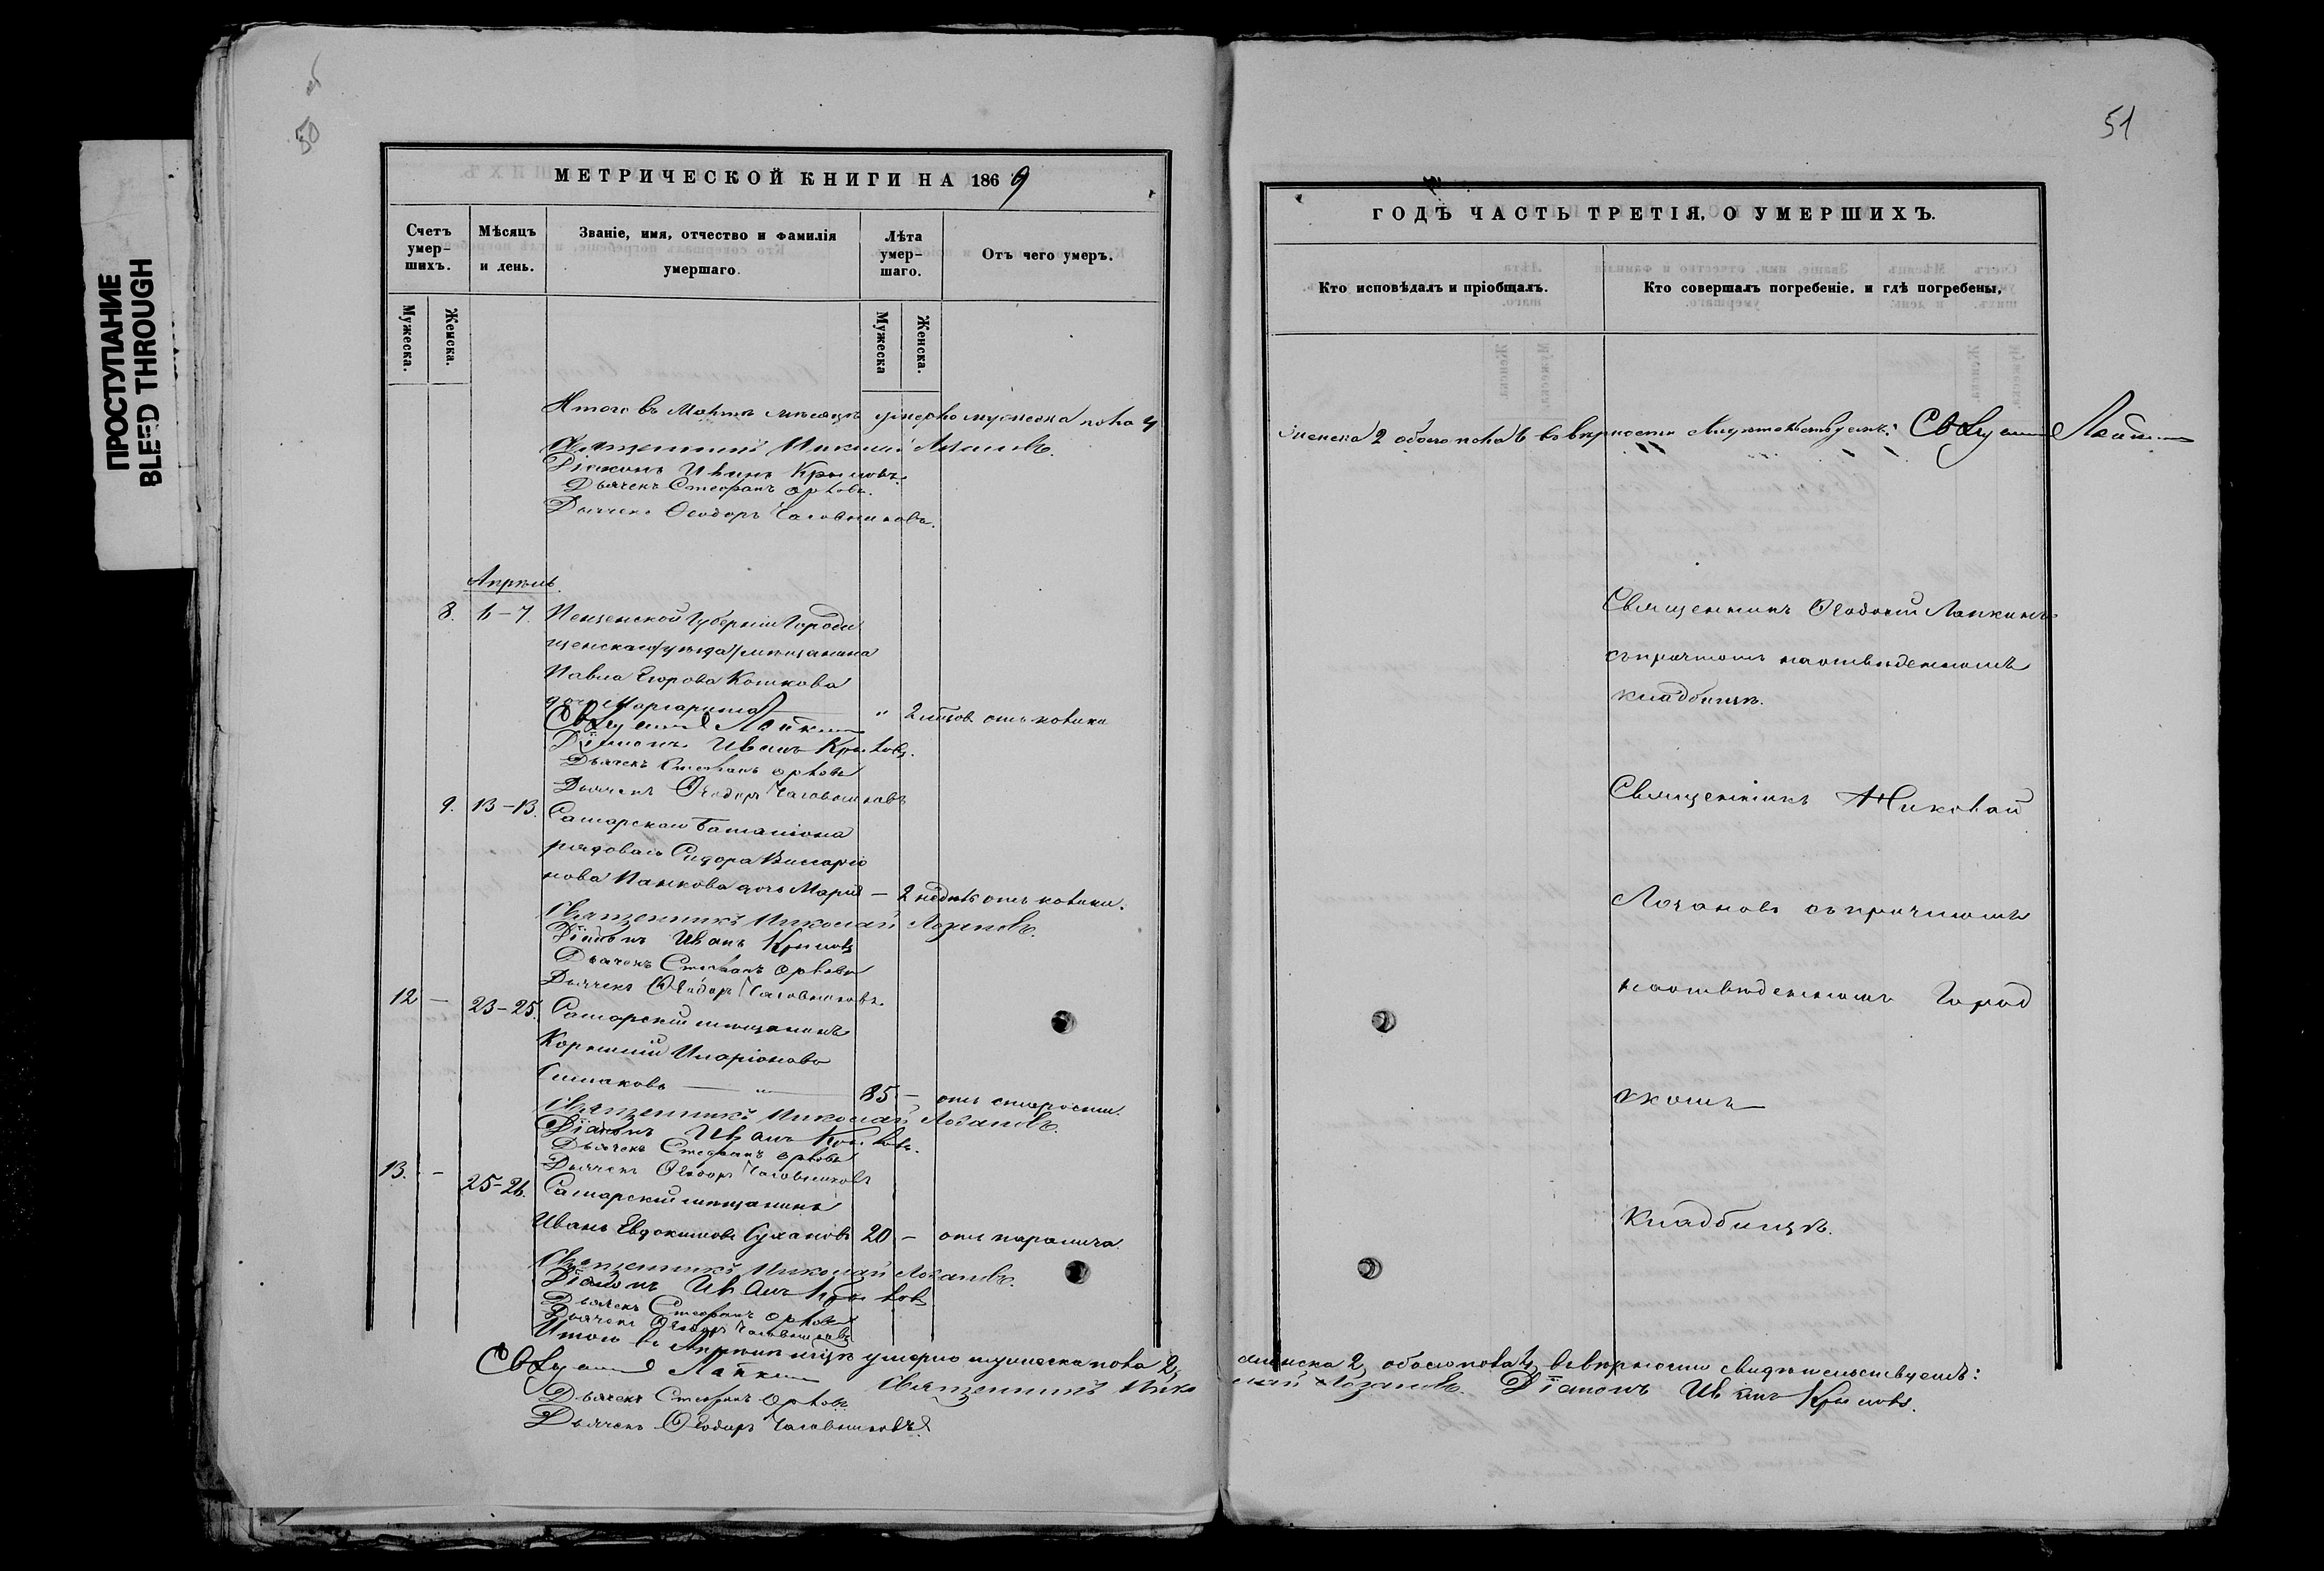 ПРОСТУПАНИЕ
BLEED THROUGH
50 об
МЕТРИЧЕСКОЙ КНИГИ НА 1869
Счетъ умер-шихъ.
Мѣсяцъ и день.
Званіе, имя, отчество и фамилія умершаго.
Лѣта умер-шаго.
Отъ чего умеръ.
Мужеска.
Женска.
Мужеска
Женска.
Итого въ Мартѣ мѣсяцѣ умерло мужеска пола 4
Священникъ Николай Лозановъ.
Діаконъ Иванъ Крыловъ.
Дьячекъ Стефанъ Орловъ.
Дьячекъ Ѳеодоръ Часовниковъ.
Апрѣль.
8. 6-7. Пензенской Губерніи Городи
щенскаго уѣзда мѣщанина
Павла Егорова Кошкова
дочь Маргарита " 2 лѣтъ отъ колики
Свящ Ѳ Лапкинъ
Діаконъ Иванъ Крыловъ.
Дьячекъ Стефанъ Орловъ
Дьячекъ Ѳеодоръ Часовниковъ
9. 13-13. Самарскаго Баталіона
рядоваго Сидора Виссаріо
нова Панкова дочь Марія — 2 недѣль отъ колики.
Священникъ Николай Лозановъ.
Діаконъ Иванъ Крыловъ
Дьячекъ Стефанъ Орловъ
Дьячекъ Ѳеодоръ Часовниковъ.
12 — 23-25. Самарскій мѣщанинъ
Корнилій Иларіоновъ
Симаковъ — " — 85 — отъ старости.
Священникъ Николай Лозановъ.
Діаконъ Иванъ Крыловъ.
Дьячекъ Стефанъ Орловъ
Дьячекъ Ѳеодоръ Часовниковъ
13. — 25-26. Самарскій мѣщанинъ
Иванъ Евдокимовъ Сухановъ 20 — отъ паралича.
Священникъ Николай Лозановъ.
Діаконъ Иванъ Крыловъ
Дьячекъ Стефанъ Орловъ
Дьячекъ Ѳеодоръ Часовниковъ
Итого въ Апрѣлѣ м-цѣ умерло мужеска пола 2,
Свящ Ѳ Лапкинъ Священникъ Нико
Дьячекъ Стефанъ Орловъ.
Дьячекъ Ѳеодоръ Часовниковъ
51
ГОДЪ ЧАСТЬ ТРЕТІЯ, О УМЕРШИХЪ.
Кто исповѣдалъ и пріобщалъ.
Кто совершалъ погребеніе, и гдѣ погребены,
женска 2 обоего пола 6 въ вѣрности свидѣтельствуемъ: Свящ Ѳ Лапкинъ
Священникъ Ѳеодосій Лапкинъ
съ причтомъ на отведенномъ
кладбищѣ.
Священникъ Николай
Лозановъ съ причтомъ
на отведенномъ Город
скомъ
Кладбищѣ.
женска 2, обоего пола 4, въ вѣрности свидѣтельствуемъ:
лай Лозановъ. Діаконъ Иванъ Крыловъ.